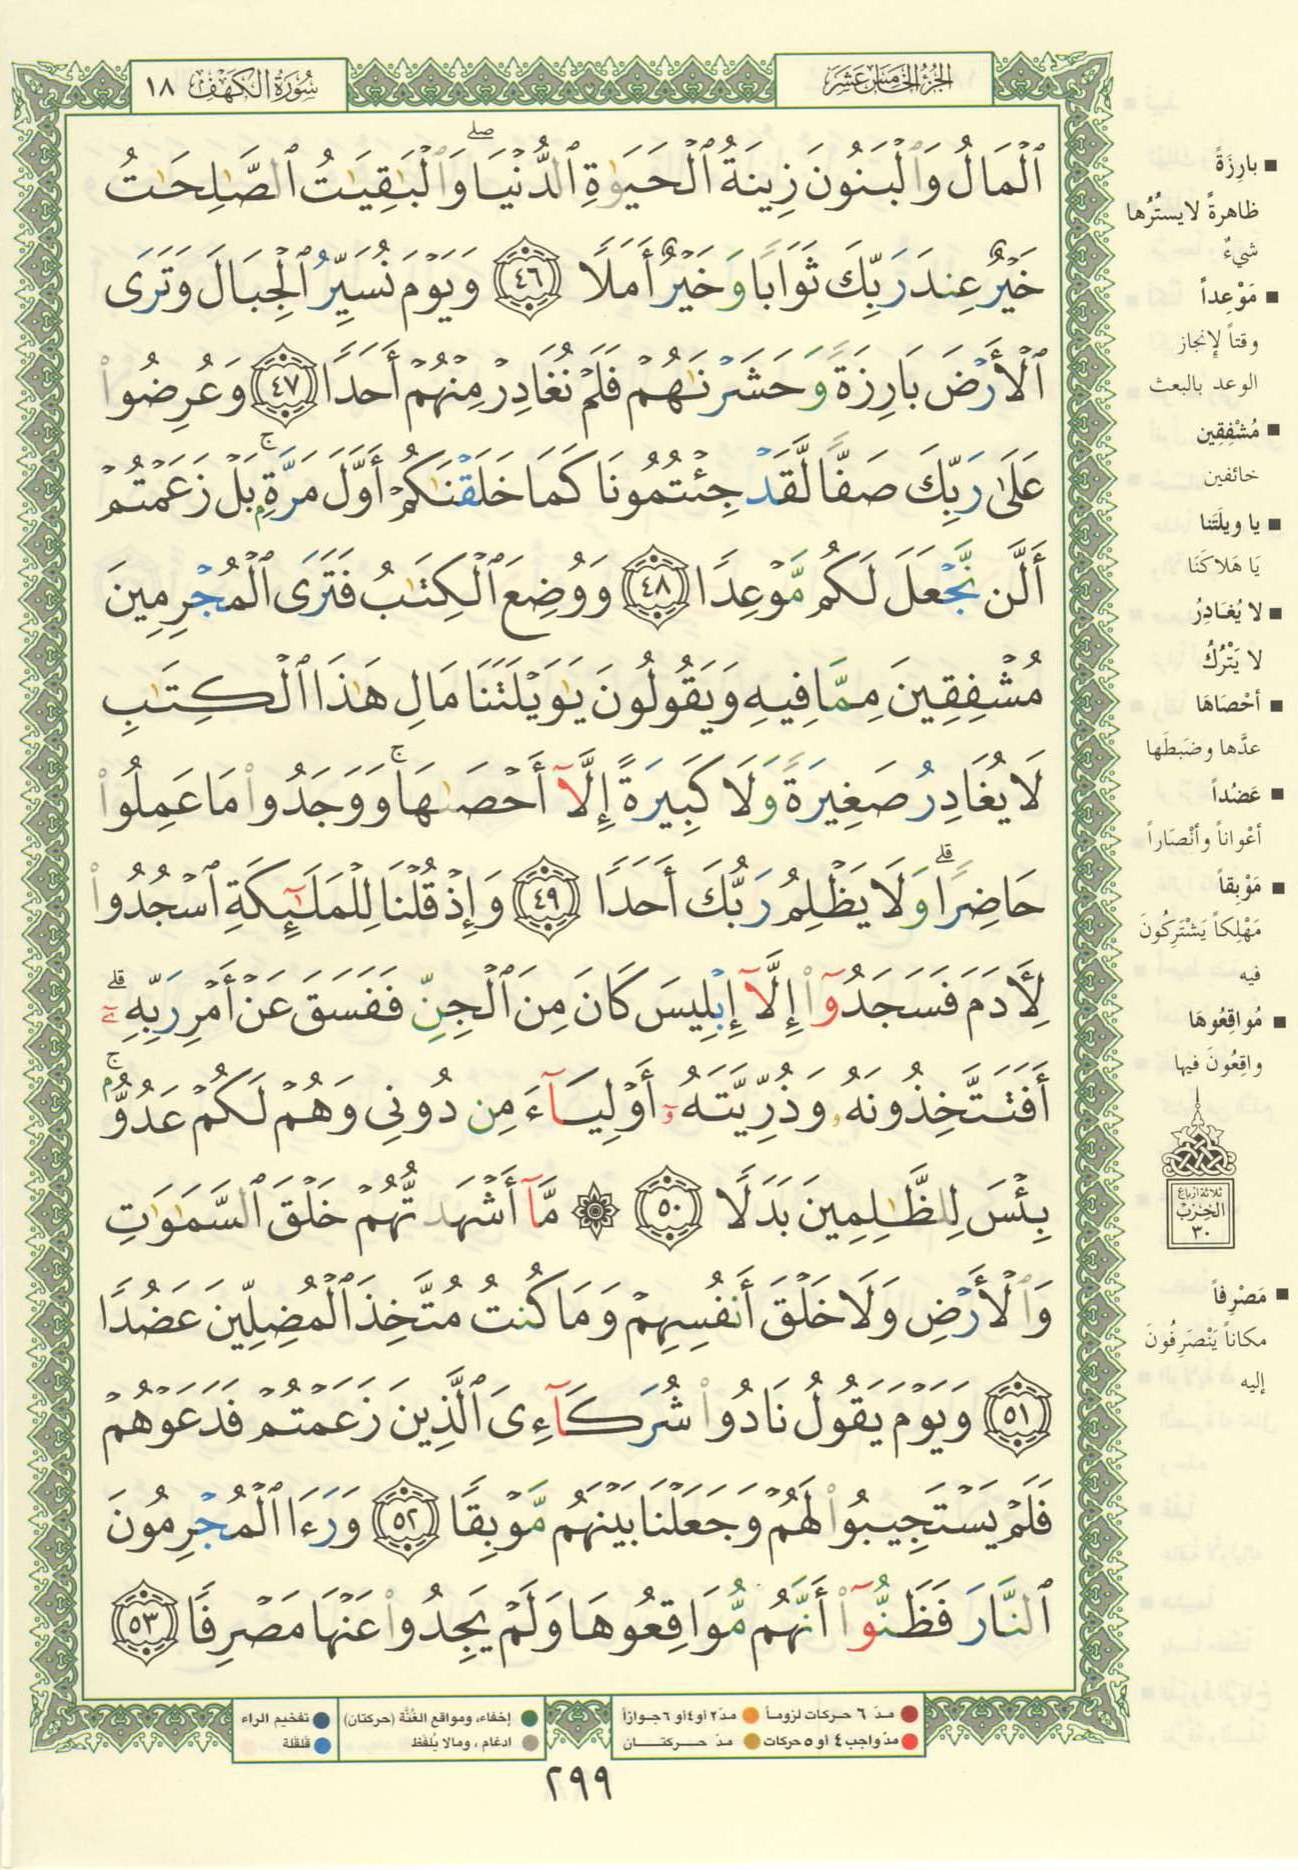 الجزء الخامس عشر
سورة الكهف ١٨
ٱلْمَالُ وَٱلْبَنُونَ زِينَةُ ٱلْحَيَوٰةِ ٱلدُّنْيَا ۖ وَٱلْبَٰقِيَٰتُ ٱلصَّٰلِحَٰتُ
خَيْرٌ عِندَ رَبِّكَ ثَوَابًا وَخَيْرٌ أَمَلًا ٤٦ وَيَوْمَ نُسَيِّرُ ٱلْجِبَالَ وَتَرَى
ٱلْأَرْضَ بَارِزَةً وَحَشَرْنَٰهُمْ فَلَمْ نُغَادِرْ مِنْهُمْ أَحَدًا ٤٧ وَعُرِضُوا۟
عَلَىٰ رَبِّكَ صَفًّا لَّقَدْ جِئْتُمُونَا كَمَا خَلَقْنَٰكُمْ أَوَّلَ مَرَّةٍۭ ۚ بَلْ زَعَمْتُمْ
أَلَّن نَّجْعَلَ لَكُم مَّوْعِدًا ٤٨ وَوُضِعَ ٱلْكِتَٰبُ فَتَرَى ٱلْمُجْرِمِينَ
مُشْفِقِينَ مِمَّا فِيهِ وَيَقُولُونَ يَٰوَيْلَتَنَا مَالِ هَٰذَا ٱلْكِتَٰبِ
لَا يُغَادِرُ صَغِيرَةً وَلَا كَبِيرَةً إِلَّآ أَحْصَىٰهَا ۚ وَوَجَدُوا۟ مَا عَمِلُوا۟
حَاضِرًا ۗ وَلَا يَظْلِمُ رَبُّكَ أَحَدًا ٤٩ وَإِذْ قُلْنَا لِلْمَلَٰٓئِكَةِ ٱسْجُدُوا۟
لِءَادَمَ فَسَجَدُوٓا۟ إِلَّآ إِبْلِيسَ كَانَ مِنَ ٱلْجِنِّ فَفَسَقَ عَنْ أَمْرِ رَبِّهِۦٓ ۗ
أَفَتَتَّخِذُونَهُۥ وَذُرِّيَّتَهُۥٓ أَوْلِيَآءَ مِن دُونِى وَهُمْ لَكُمْ عَدُوٌّۢ ۚ
بِئْسَ لِلظَّٰلِمِينَ بَدَلًا ٥٠ ۞ مَّآ أَشْهَدتُّهُمْ خَلْقَ ٱلسَّمَٰوَٰتِ
وَٱلْأَرْضِ وَلَا خَلْقَ أَنفُسِهِمْ وَمَا كُنتُ مُتَّخِذَ ٱلْمُضِلِّينَ عَضُدًا
٥١ وَيَوْمَ يَقُولُ نَادُوا۟ شُرَكَآءِىَ ٱلَّذِينَ زَعَمْتُمْ فَدَعَوْهُمْ
فَلَمْ يَسْتَجِيبُوا۟ لَهُمْ وَجَعَلْنَا بَيْنَهُم مَّوْبِقًا ٥٢ وَرَءَا ٱلْمُجْرِمُونَ
ٱلنَّارَ فَظَنُّوٓا۟ أَنَّهُم مُّوَاقِعُوهَا وَلَمْ يَجِدُوا۟ عَنْهَا مَصْرِفًا ٥٣
■ بارِزَةً
ظاهرةً لا يستُرُها
شيءٌ
■ مَوْعِداً
وقتاً لإنجاز
الوعد بالبعث
■ مُشْفِقِين
خائفين
■ يا ويلَتَنا
يَا هَلاكَنَا
■ لا يُغـادِرُ
لا يَتْرُكُ
■ أحْصَاهَا
عدَّها وضبَطَها
■ عَضُداً
أعْواناً وأنْصَاراً
■ مَوْبِقاً
مَهْلِكاً يَشْتَرِكُونَ
فيه
■ مُواقِعُوهَا
واقِعُونَ فيها
ثلاثة أرباع
الحزب
٣٠
■ مَصْرِفاً
مكاناً يَنْصَرِفُونَ
إليه
مدّ ٦ حركات لزوماً مدّ ٢ أو ٤ أو ٦ جوازاً
مدّ واجب ٤ أو ٥ حركات مدّ حـركتـــان
إخفاء، ومواقع الغُنَّة (حركتان) تفخيم الراء
ادغام، ومالا يُلفَظ قلقلة
٢٩٩